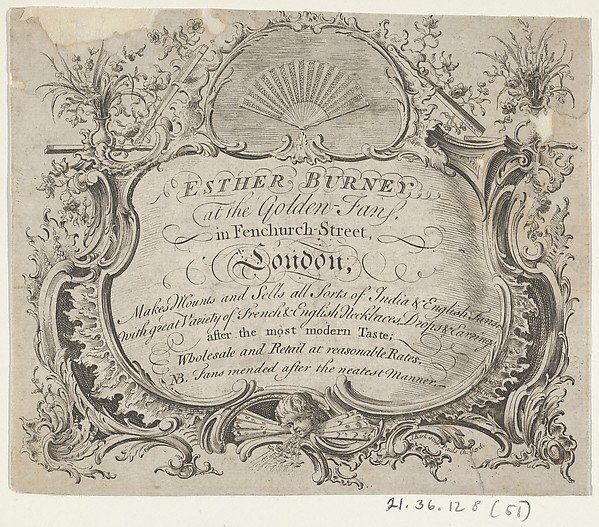 ESTHER BURNEY
at the Golden Fans,
in Fenchurch-Street,
London,
Makes Mounts and Sells all Sorts of India & English Fans,
with great Variety of French & English Necklaces, Drops & Earrings
after the most modern Taste;
Wholesale and Retail at reasonable Rates.
NB. Fans mended after the neatest Manner.
21.36.128 (51)